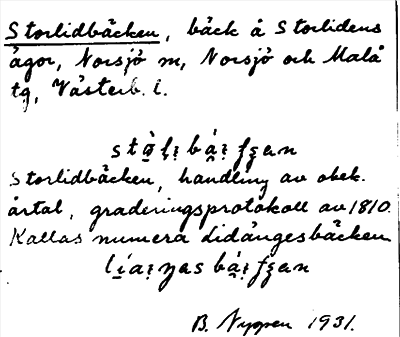 Storlidbäcken, bäck å Storlidens
ägor, Norsjö sn, Norsjö och Malå
tg, Västerb. l.
Storlidbäcken, handling av obek.
årtal, graderingsprotokoll av 1810.
Kallas numera Lidängesbäcken
B. Nygren 1931.